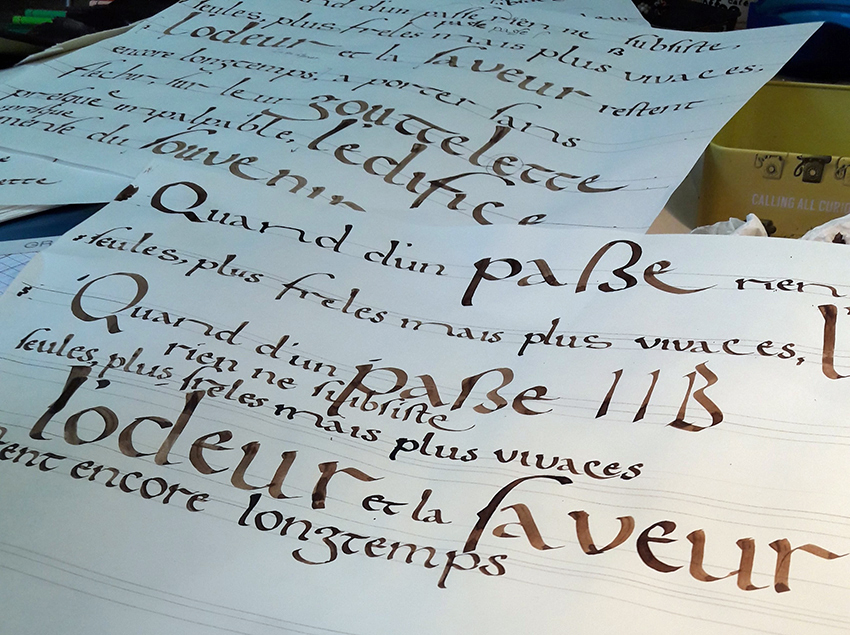 d'un paße rien, ne subsiste,
seules, plus freles mais plus vivaces,
l'odeur et la saveur restent
encore longtemps, a porter sans
flechir, sur leur gouttelette
presque impalpable, l'edifice
du souvenir
Quand d'un paße rien
seules, plus freles mais plus vivaces, l'
Quand d'un paße IIß
rien ne subsiste
seules, plus frêles mais plus vivaces
l'odeur et la saveur
encore longtemps
CALLING ALL